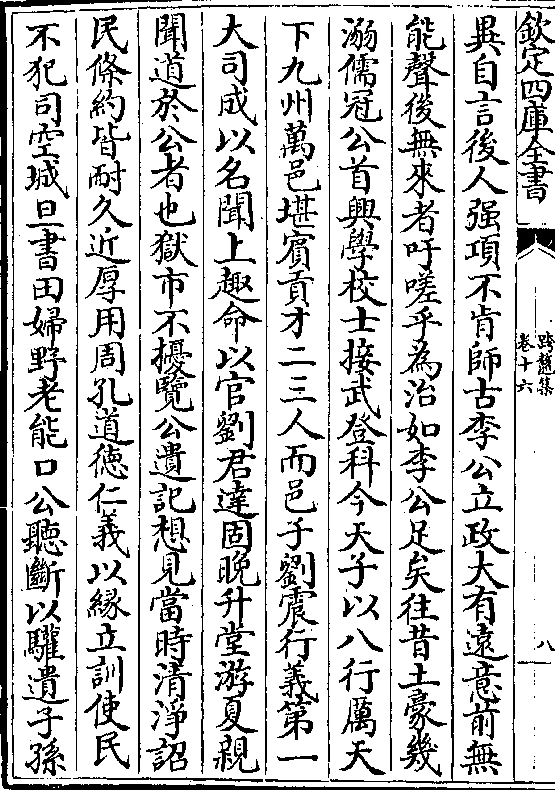 欽定四庫全書
跨鼇集
卷十六
八
異自言後人强項不肯師古李公立政大有遠意前無
能聲後無來者吁嗟乎為治如李公足矣往昔土豪幾
溺儒冠公首興學校士接武登科今天子以八行厲天
下九州萬邑堪賓貢才二三人而邑子劉震行義第一
大司成以名聞上趣命以官劉君達固晩升堂游夏親
聞道於公者也獄市不擾覽公遺記想見當時清淨詔
民條約皆耐久近厚用周孔道徳仁義以縁立訓使民
不犯司空城旦書田婦野老能口公聽斷以驩遺子孫